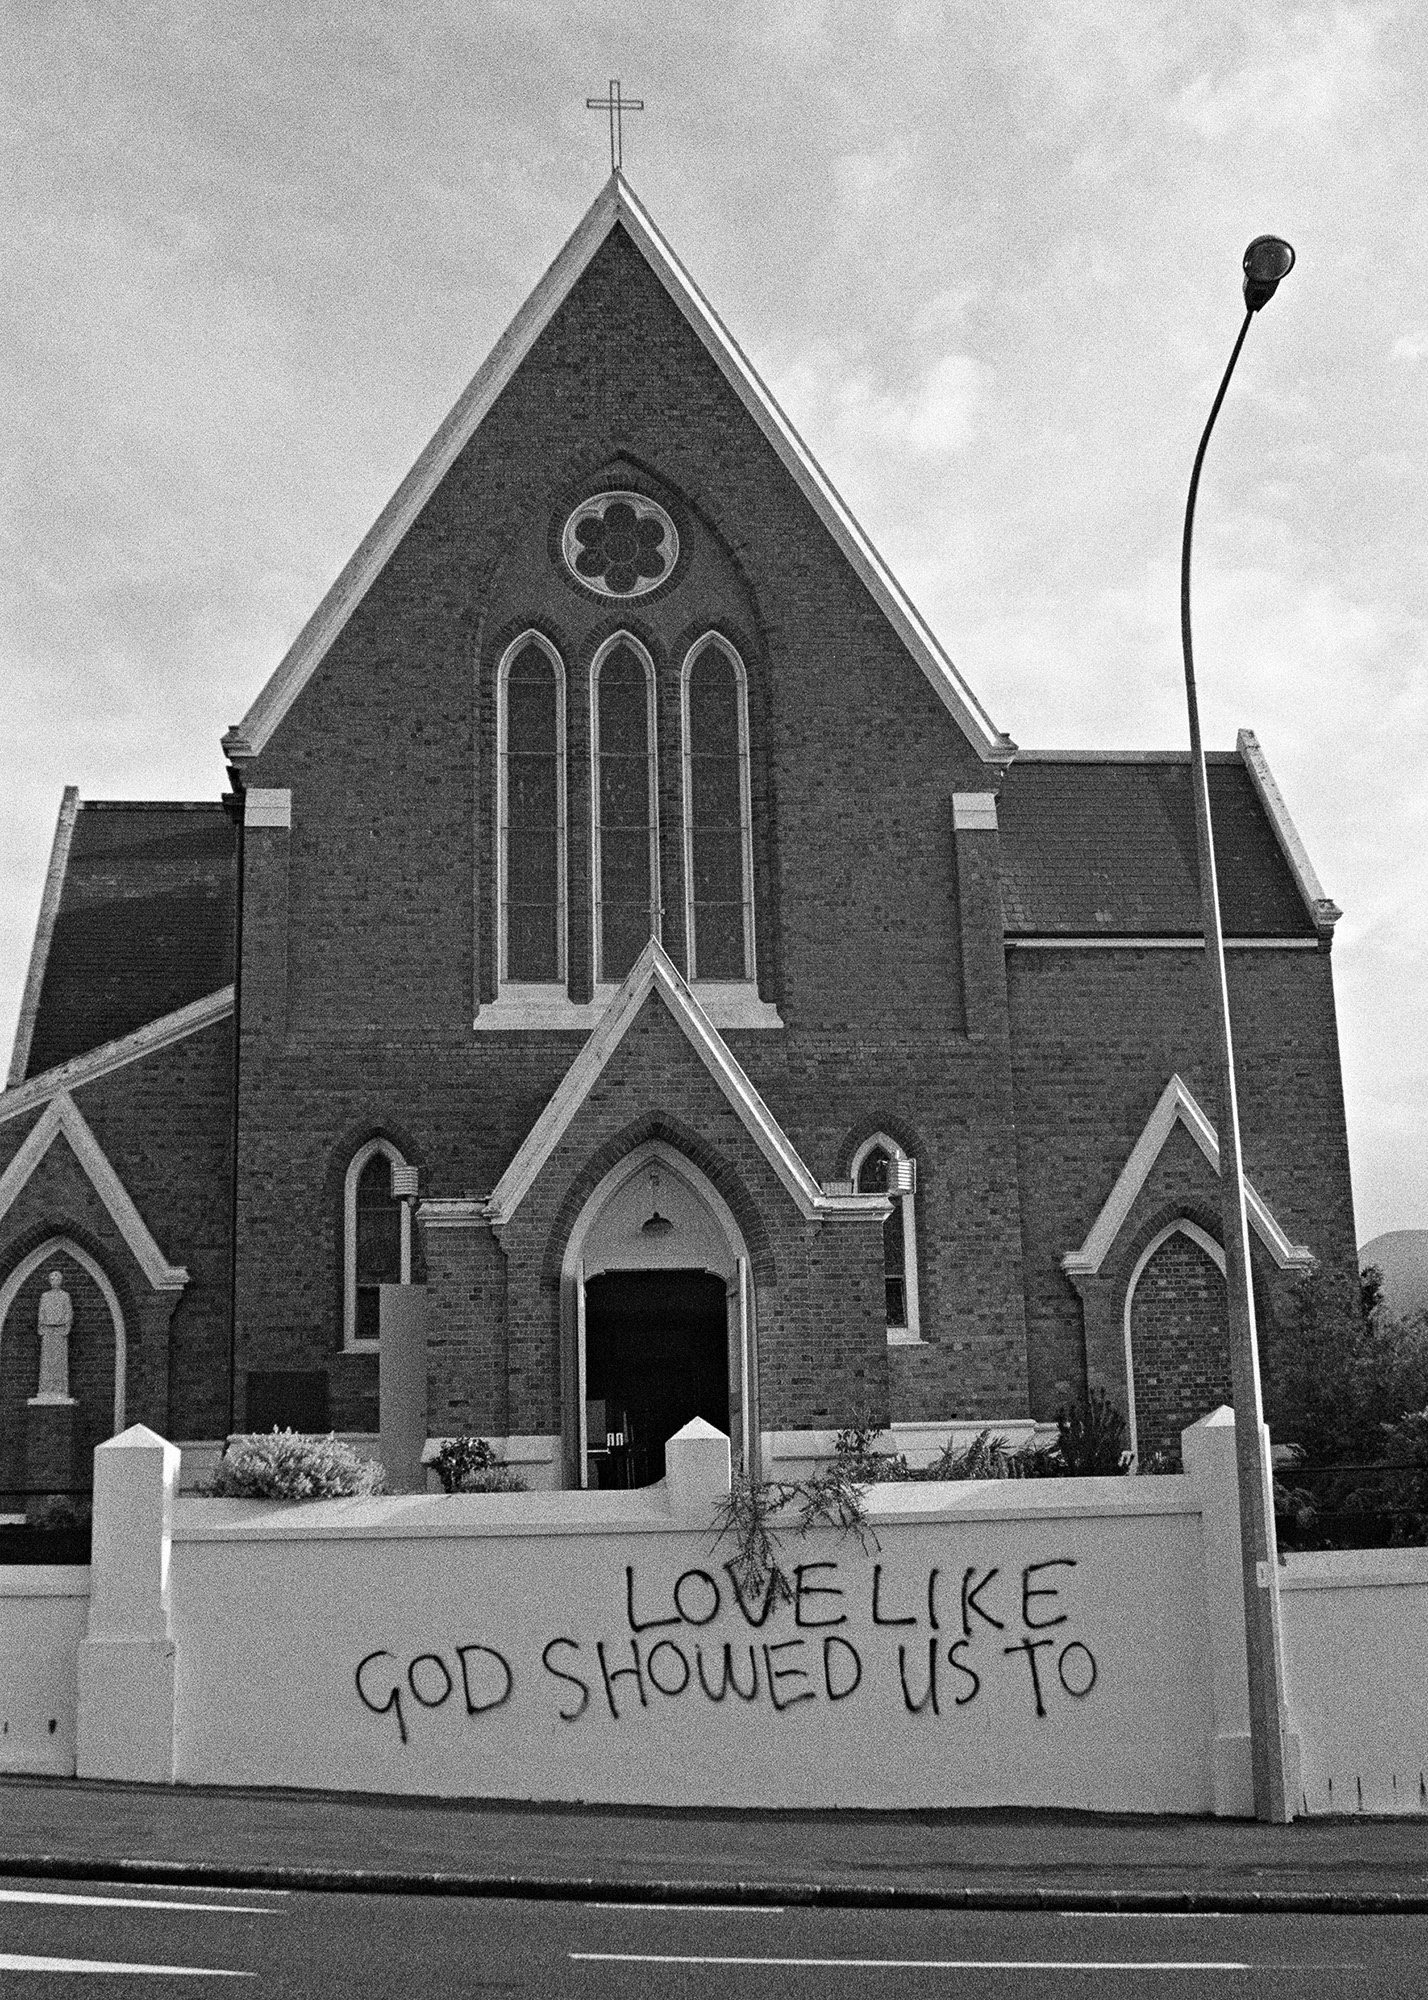 LOVE LIKE
GOD SHOWED US TO